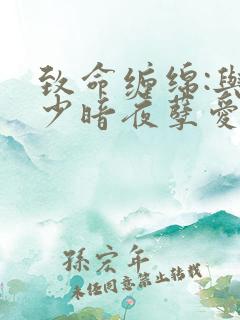 致命缠绵:與
少暗夜孽爱
孫宏年
未经同意禁止转载